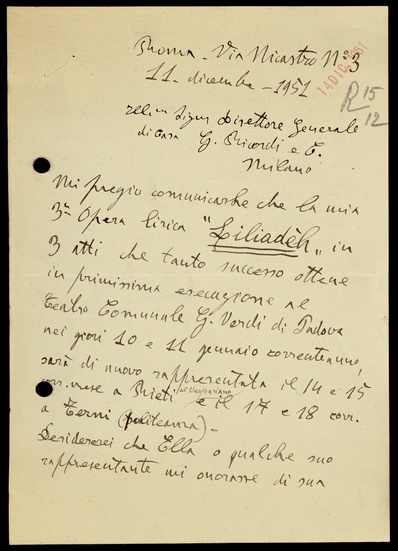 Roma - Via Nicastro N° 3
11. dicembre - 1951
14 DIC. 1951
R 15
12
Ill.mo Signor Direttore Generale
di Casa G. Ricordi e C.
Milano
Mi pregio comunicarLe che la mia
3ª Opera lirica "Liliadèh„ in
3 atti che tanto successo ottene
in primissima esecuzione al
Teatro Comunale G. Verdi di Padova
nei giorni 10 e 11 gennaio corrente anno,
sarà di nuovo rappresentata il 14 e 15
corr. mese a Rieti e il 17 e 18 corr.
al Vespasiano
a Terni (politeama) -
Desidererei che Ella o qualche suo
rappresentante mi onorasse di sua